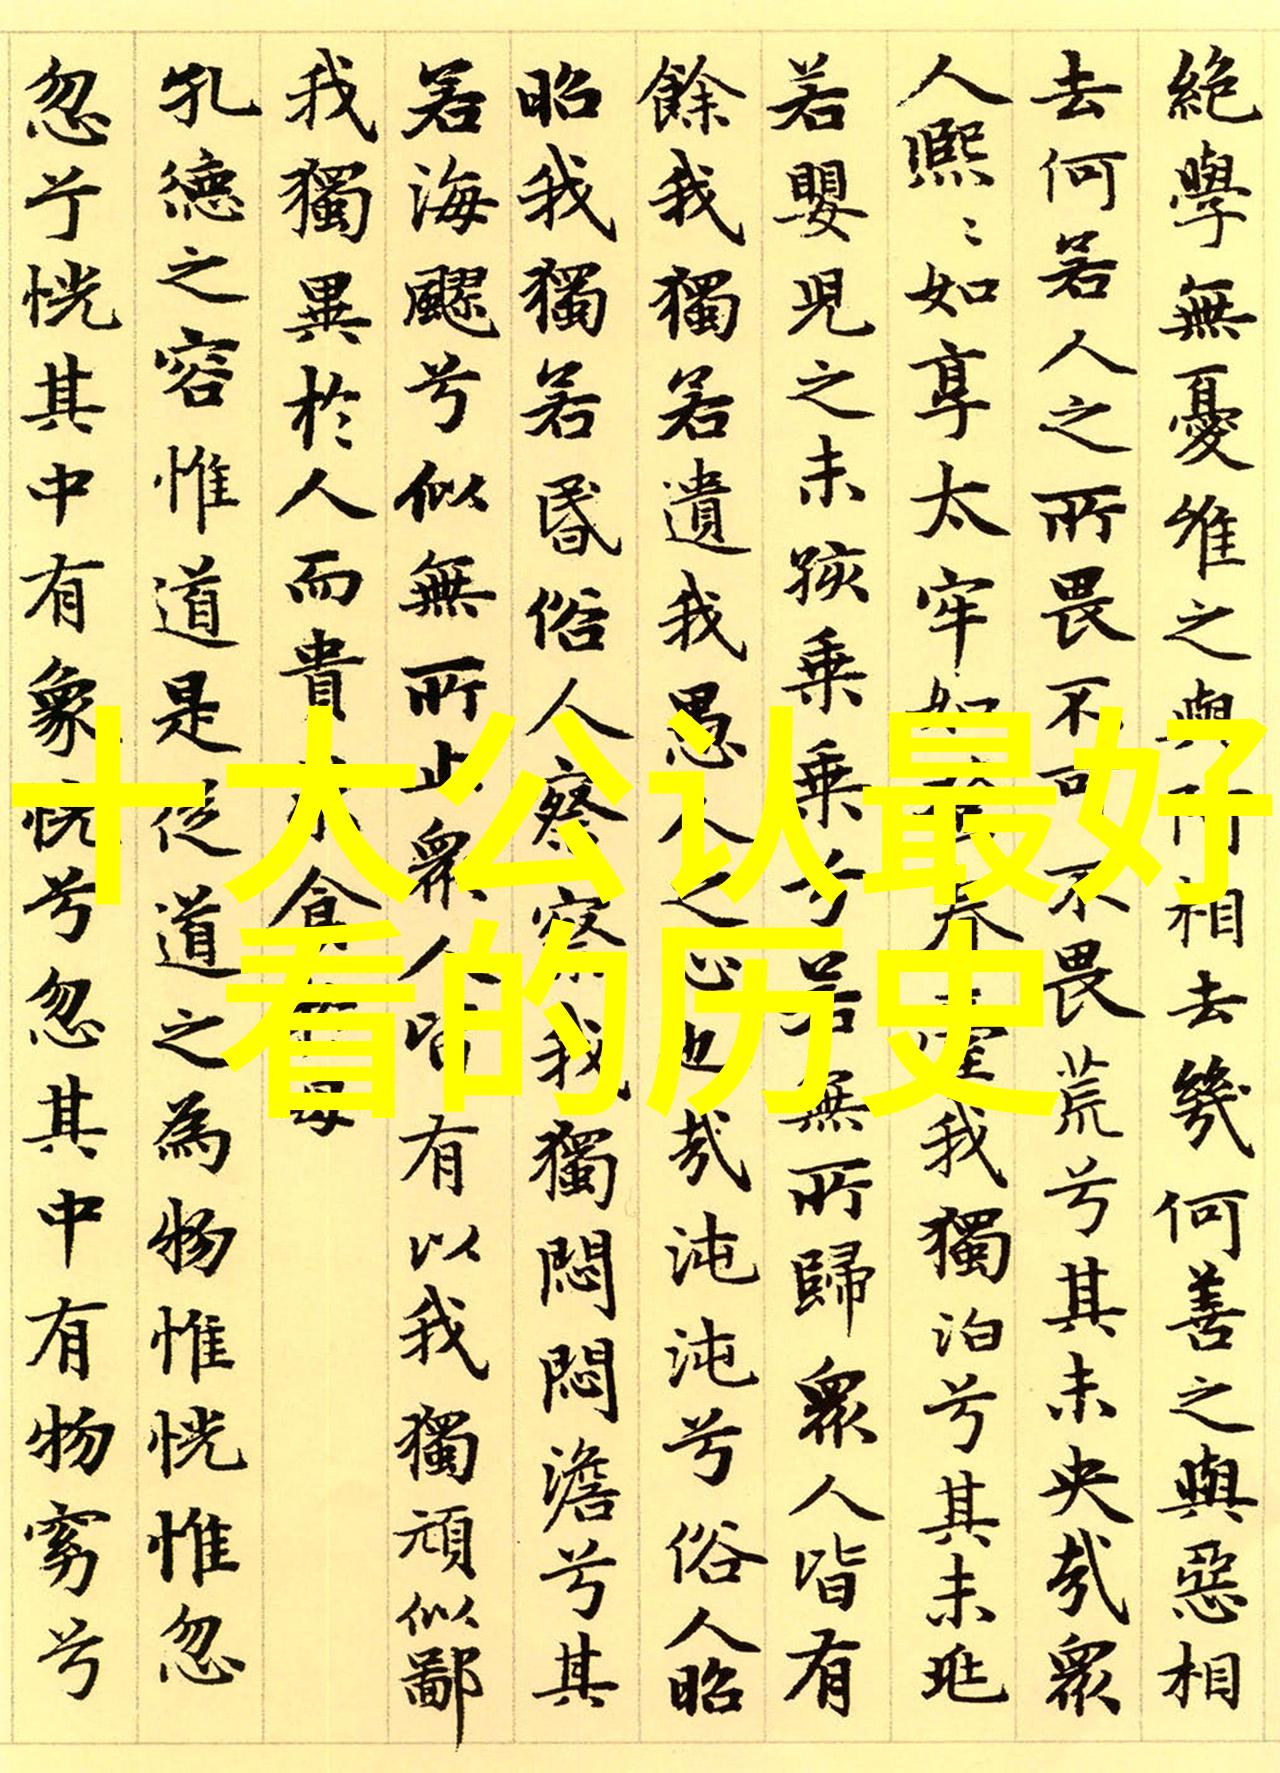 絕學無憂唯之與阿相去幾何善之與惡相
去何若人之所畏不可不畏荒兮其未央哉眾
人熙〻如享太牢如登春臺我獨泊兮其未兆
若嬰兒之未孩乘乘兮若無所歸眾人皆有
餘我獨若遺我愚人之心也哉沌沌兮俗人昭
昭我獨若昏俗人察察我獨悶悶澹兮其
若海飂兮似無所止眾人皆有以我獨頑似鄙
我獨異於人而貴求食於母
孔德之容惟道是從道之為物惟恍惟忽
忽兮恍其中有象恍兮忽其中有物窈兮
十大公认最好
看的历史